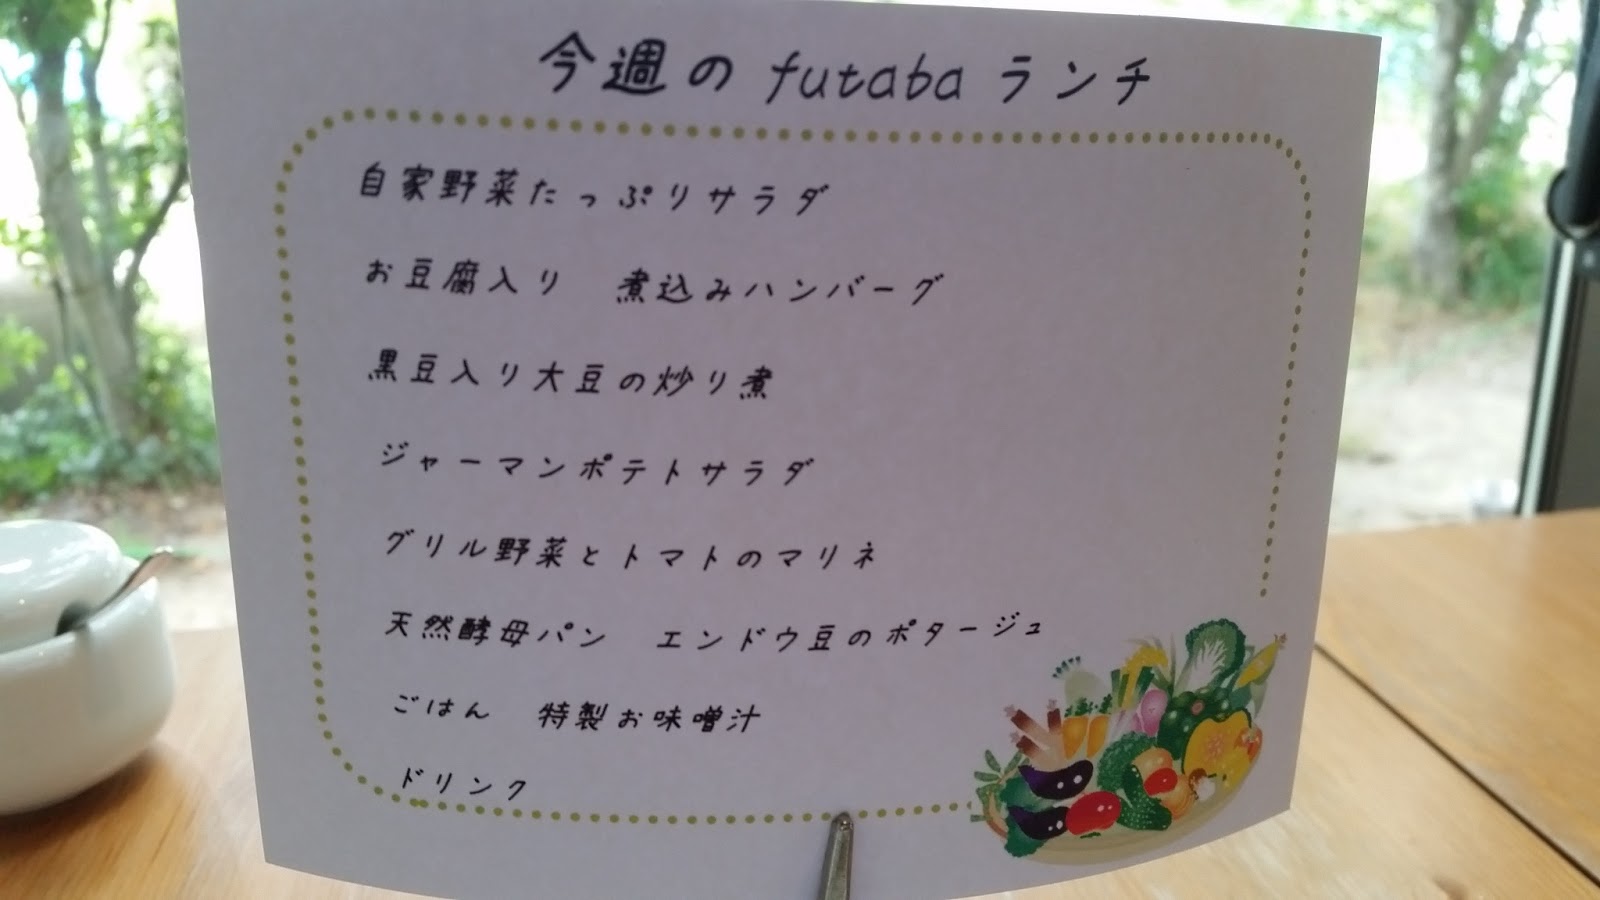 今週の futaba ランチ
自家野菜たっぷりサラダ
お豆腐入り　煮込みハンバーグ
黒豆入り大豆の炒り煮
ジャーマンポテトサラダ
グリル野菜とトマトのマリネ
天然酵母パン　エンドウ豆のポタージュ
ごはん　特製お味噌汁
ドリンク